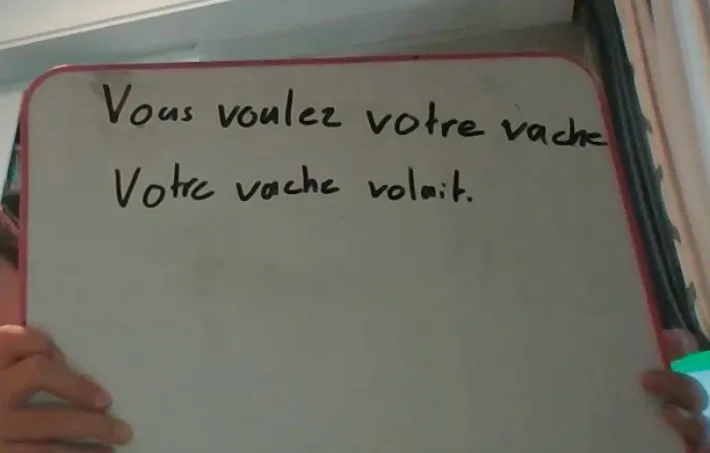 Vous voulez votre vache
Votre vache volait.